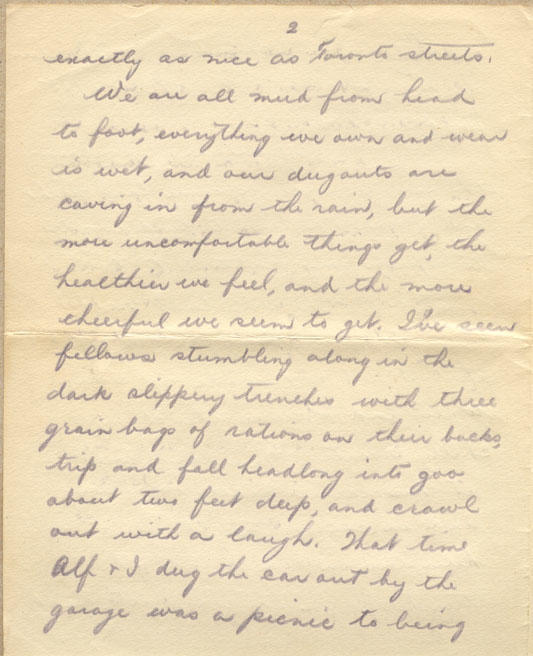 2
exactly as nice as Toronto streets.
We are all mud from head
to foot, everything we own and wear
is wet, and our dugouts are
caving in from the rain, but the
more uncomfortable things get, the
healthier we feel, and the more
cheerful we seem to get. I've seen
fellows stumbling along in the
dark slippery trenches with three
grain bags of rations on their backs,
trip and fall headlong into goo
about two feet deep, and crawl
out with a laugh. That time
Alf & I dug the car out by the
garage was a picnic to being